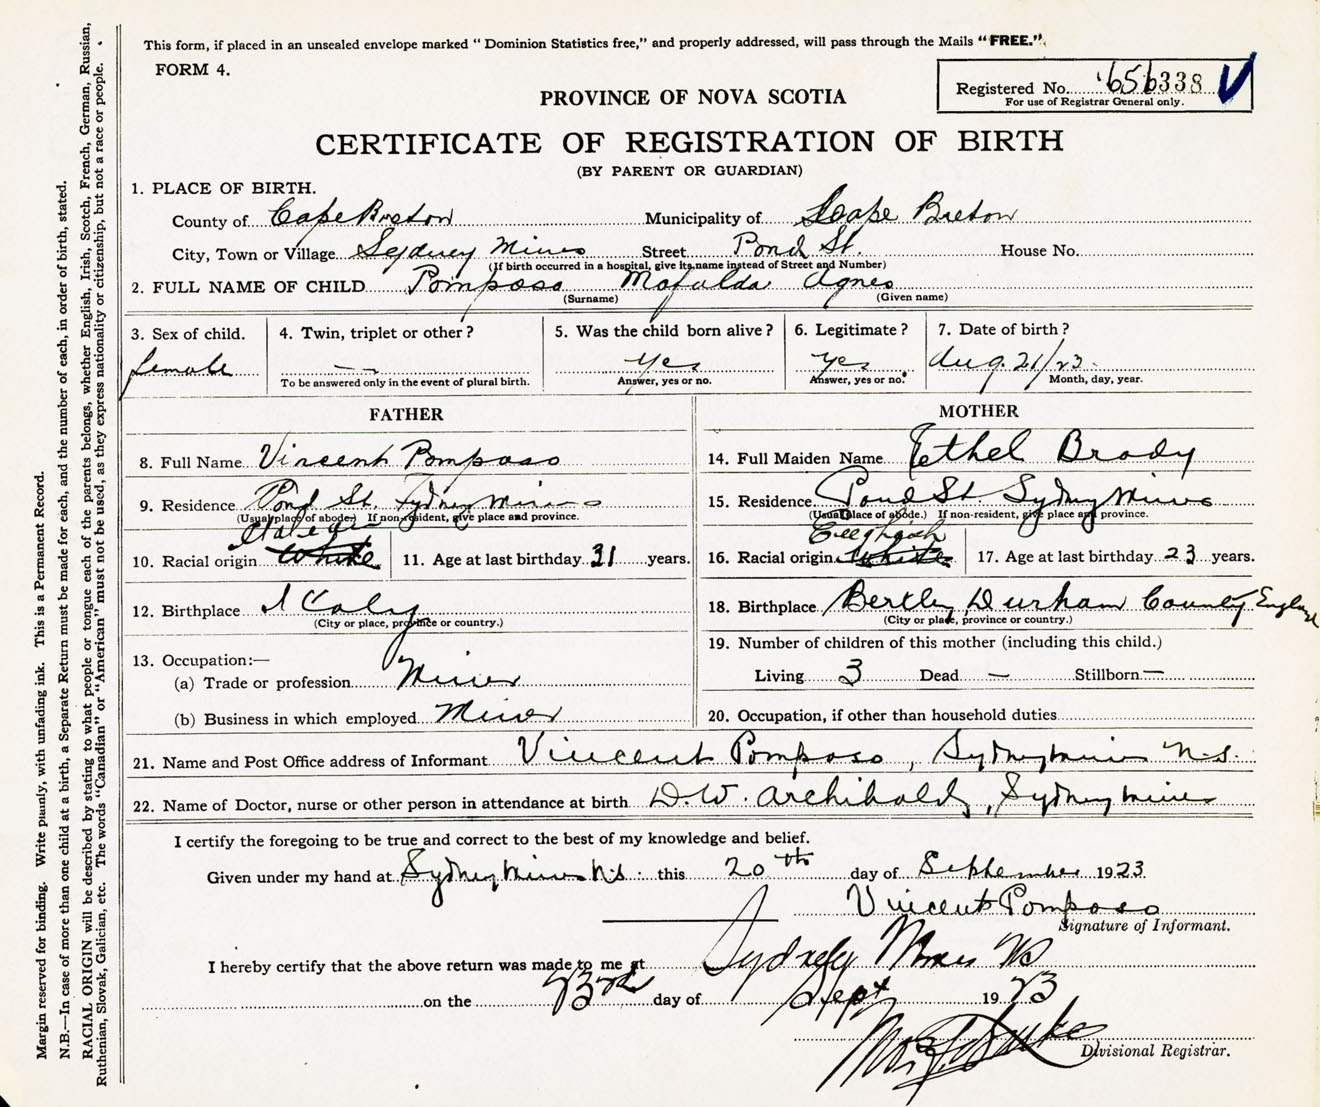 This form, if placed in an unsealed envelope marked “ Dominion Statistics free,” and properly addressed, will pass through the Mails “FREE.”
FORM 4.
Registered No. 656338
For use of Registrar General only.
PROVINCE OF NOVA SCOTIA
CERTIFICATE OF REGISTRATION OF BIRTH
(BY PARENT OR GUARDIAN)
1. PLACE OF BIRTH.
County of Cape Breton Municipality of Cape Breton
City, Town or Village Sydney Mines Street Pond St. House No.
(If birth occurred in a hospital, give its name instead of Street and Number)
2. FULL NAME OF CHILD Pomposo Mafalda Agnes
(Surname) (Given name)
3. Sex of child. 4. Twin, triplet or other? 5. Was the child born alive? 6. Legitimate? 7. Date of birth?
female — — Yes Yes Aug. 21/23
To be answered only in the event of plural birth. Answer, yes or no. Answer, yes or no. Month, day, year.
FATHER
8. Full Name Vincent Pomposo
9. Residence Pond St Sydney Mines
(Usual place of abode.) If non-resident, give place and province.
10. Racial origin White 11. Age at last birthday 31 years.
12. Birthplace Italy
(City or place, province or country.)
13. Occupation:—
(a) Trade or profession Miner
(b) Business in which employed Miner
MOTHER
14. Full Maiden Name Ethel Brady
15. Residence Pond St Sydney Mines
(Usual place of abode.) If non-resident, give place and province.
16. Racial origin White 17. Age at last birthday 23 years.
18. Birthplace Bertley Durham County England
(City or place, province or country.)
19. Number of children of this mother (including this child.)
Living 3 Dead — Stillborn —
20. Occupation, if other than household duties
21. Name and Post Office address of Informant Vincent Pomposo, Sydney Mines N.S.
22. Name of Doctor, nurse or other person in attendance at birth D.W. Archibald, Sydney Mines
I certify the foregoing to be true and correct to the best of my knowledge and belief.
Given under my hand at Sydney Mines N.S. this 20th day of September 1923
Vincent Pomposo
Signature of Informant.
I hereby certify that the above return was made to me at Sydney Mines NS
on the 23rd day of Sept 1923
Divisional Registrar.
Margin reserved for binding. Write plainly, with unfading ink. This is a Permanent Record.
N.B.—In case of more than one child at a birth, a Separate Return must be made for each, and the number of each, in order of birth, stated.
RACIAL ORIGIN will be described by stating to what people or tongue each of the parents belongs, whether English, Irish, Scotch, French, German, Russian,
Ruthenian, Slovak, Galician, etc. The words “Canadian” or “American” must not be used, as they express nationality or citizenship, but not a race or people.